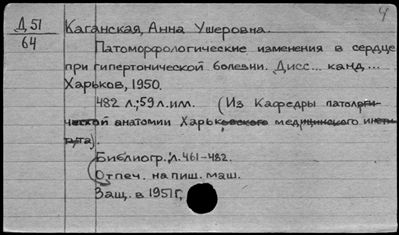 Д 51
64
Каганская, Анна Ушеровна.
Патоморфологические изменения в сердце
при гипертонической болезни. Дисс... канд...
Харьков, 1950.
482 л.; 59 л. илл. (Из Кафедры патологи-
ческой анатомии Харьковского медицинского инсти-
тута).
Библиогр.: л. 461-482.
Отпеч. на пиш. маш.
Защ. в 1951 г.